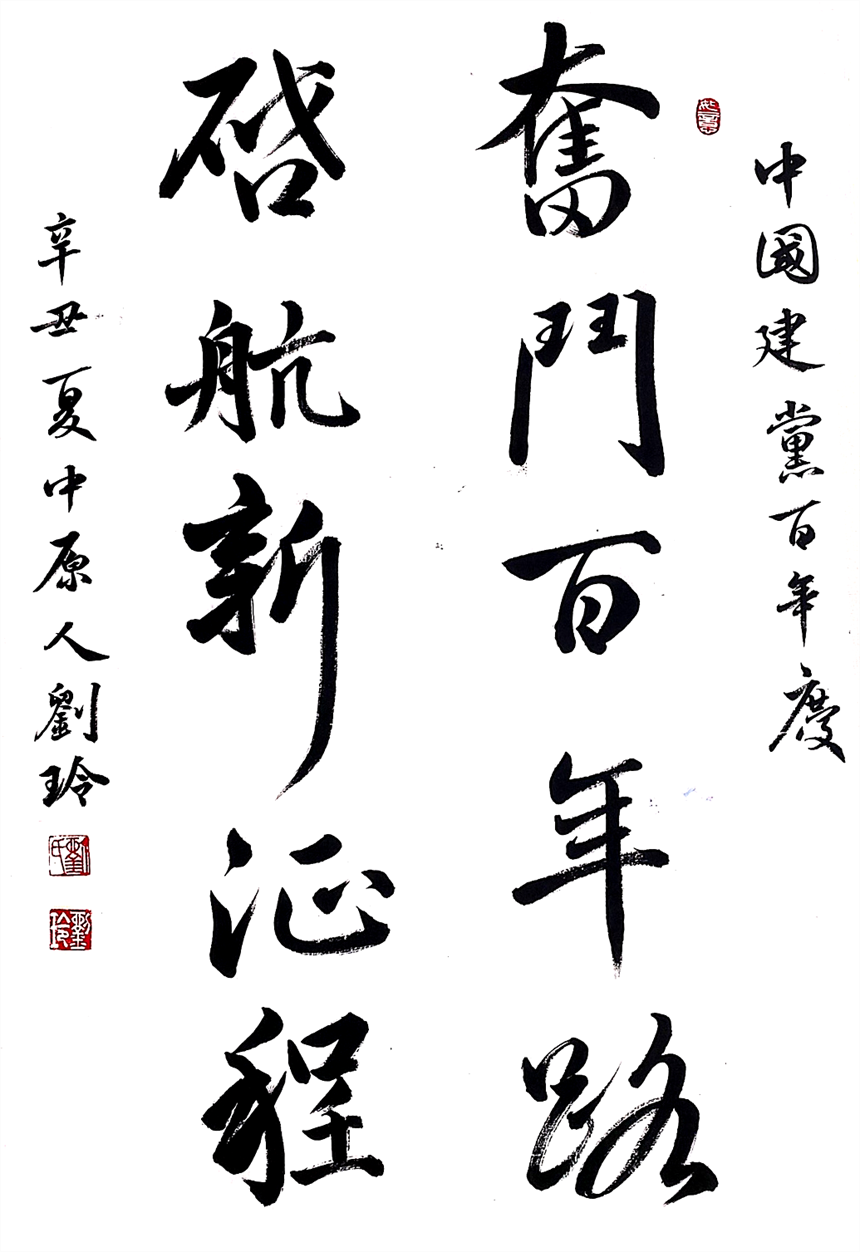 中國建黨百年慶
奮鬥百年路
啓航新征程
辛丑夏中原人劉玲
如意
劉氏
劉玲